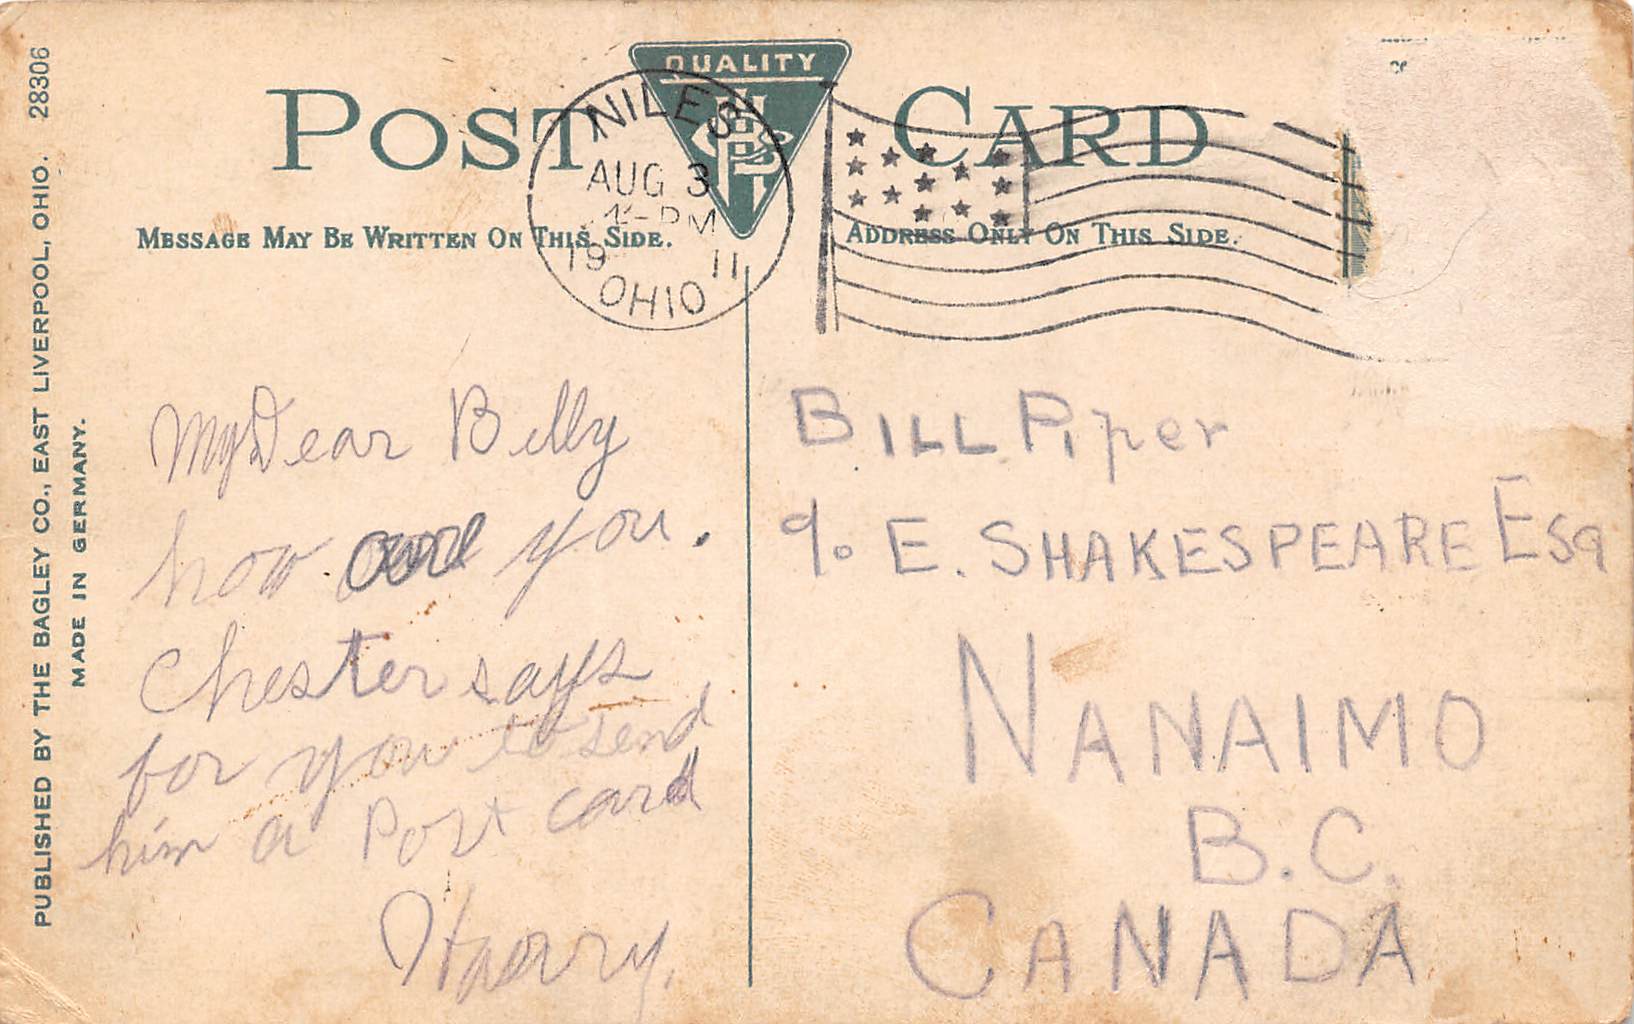 QUALITY
POST CARD
MESSAGE MAY BE WRITTEN ON THIS SIDE.
ADDRESS ONLY ON THIS SIDE.
NILES
AUG 3
PM
19 11
OHIO
PUBLISHED BY THE BAGLEY CO., EAST LIVERPOOL, OHIO. 28306
MADE IN GERMANY.
My Dear Billy
how are you.
Chester says
for you to send
him a Post card
Harry.
BILL Piper
c/o E. SHAKESPEARE Esq
NANAIMO
B.C.
CANADA